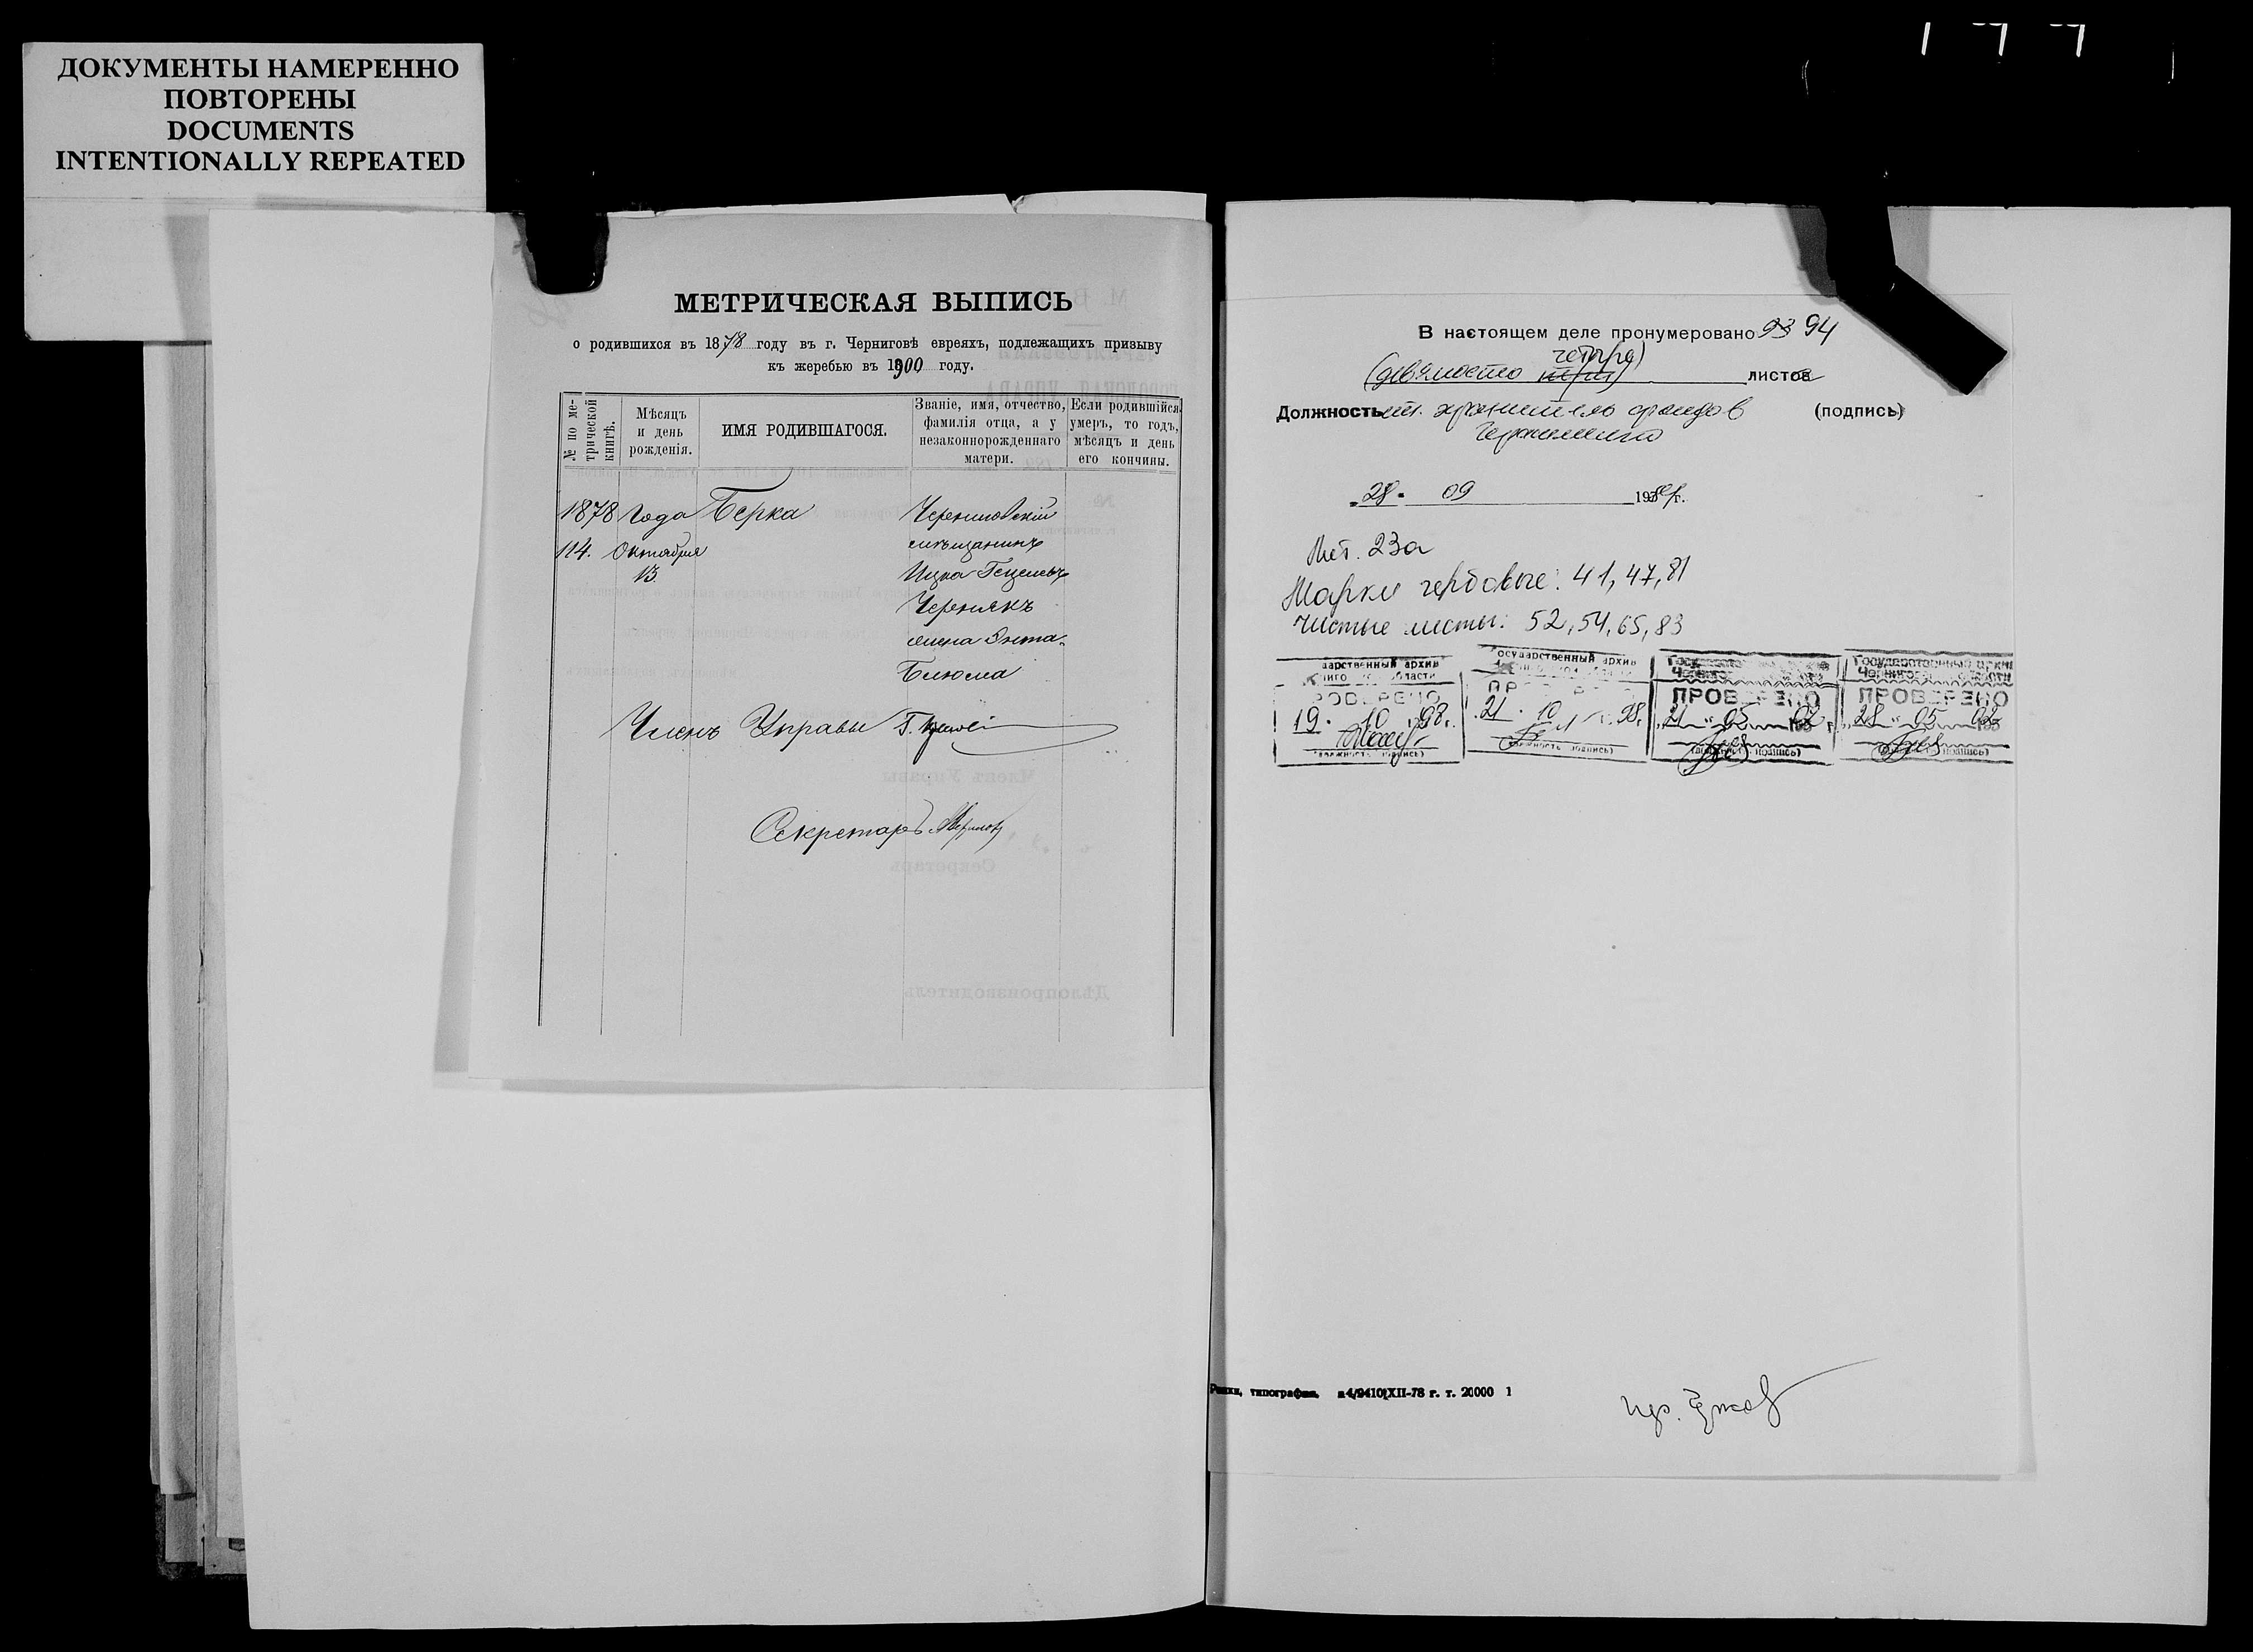 ДОКУМЕНТЫ НАМЕРЕННО
ПОВТОРЕНЫ
DOCUMENTS
INTENTIONALLY REPEATED
МЕТРИЧЕСКАЯ ВЫПИСЬ
о родившихся въ 1878 году въ г. Черниговѣ евреяхъ, подлежащихъ призыву
къ жеребью въ 1900 году.
№ по ме-
трической
книгѣ.
Мѣсяцъ
и день
рожденія.
ИМЯ РОДИВШАГОСЯ.
Званіе, имя, отчество,
фамилія отца, а у
незаконнорожденнаго
матери.
Если родившійся
умеръ, то годъ,
мѣсяцъ и день
его кончины.
1878 года Берка Черниговскій
114. Октября мѣщанинъ
13. Ицка Гецелевъ
Чернякъ
жена Энта-
Блюма
Членъ Управы
Секретарь
В настоящем деле пронумеровано 93 94
четыре)
(девяносто три) листов
Должность ст. хранитель фондов (подпись)
28. 09 198 г.
Лит. 23а
Марки гербовые: 41, 47, 81
Чистые листы: 52, 54, 65, 83
дарственный архив
области
19. 10 98 г.
(должность подпись)
осударственный архив
21. 10 98.
Государственный
Чернигов
ПРОВЕРЕНО
21 05 02
(должность подпись)
Государственный архив
Чернигов области
ПРОВЕРЕНО
28 05 02
подпись)
типография, з 4/9410 XII-78 г. т. 20000 1